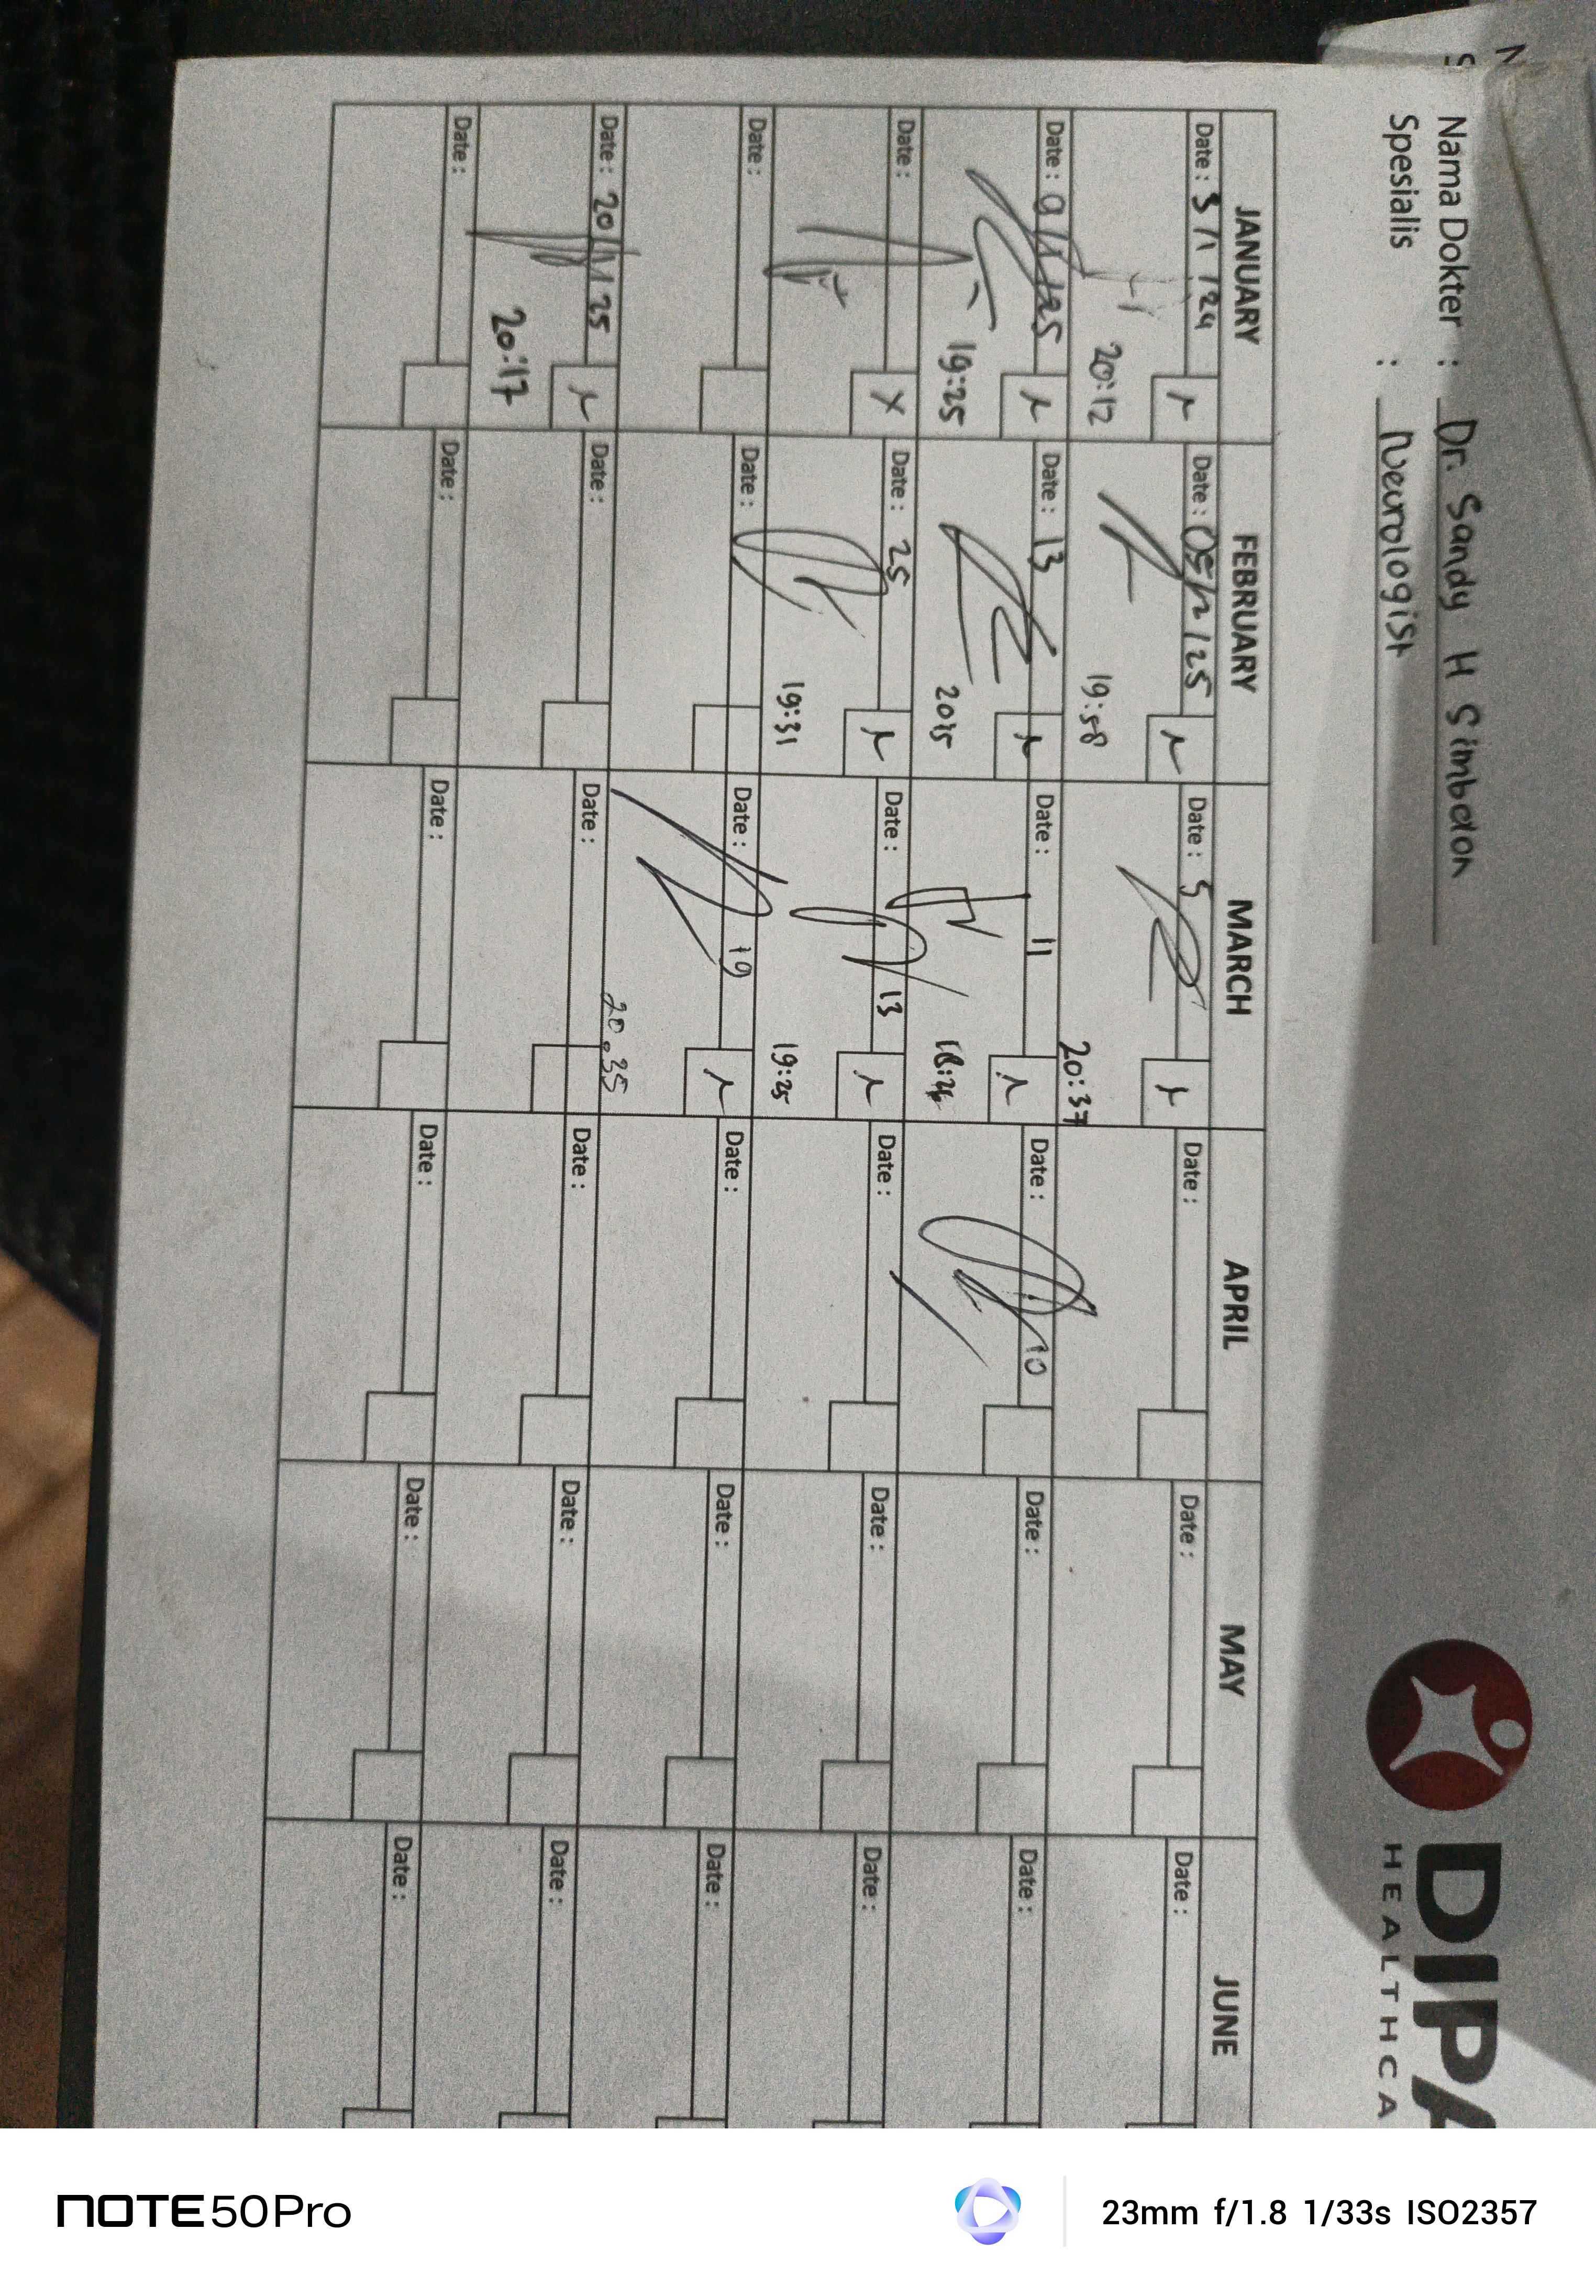 Nama Dokter : Dr. Sandy H Simbolon
Spesialis : Neurologist
DIPA
HEALTHCA
JANUARY FEBRUARY MARCH APRIL MAY JUNE
Date: 3/1/24 Date: 05/2/25 Date: 5 Date: Date: Date:
20:12 19:58 20:37
Date: 9/1/25 Date: 13 Date: 11 Date: 10 Date: Date:
19:25 2015
Date: X Date: 25 Date: 13 Date: Date: Date:
19:31 19:25
Date: Date: Date: 19 Date: Date: Date:
20.35
Date: 20/1/25 Date: Date: Date: Date: Date:
20:17
Date: Date: Date: Date: Date: Date:
NOTE50Pro
23mm f/1.8 1/33s ISO2357